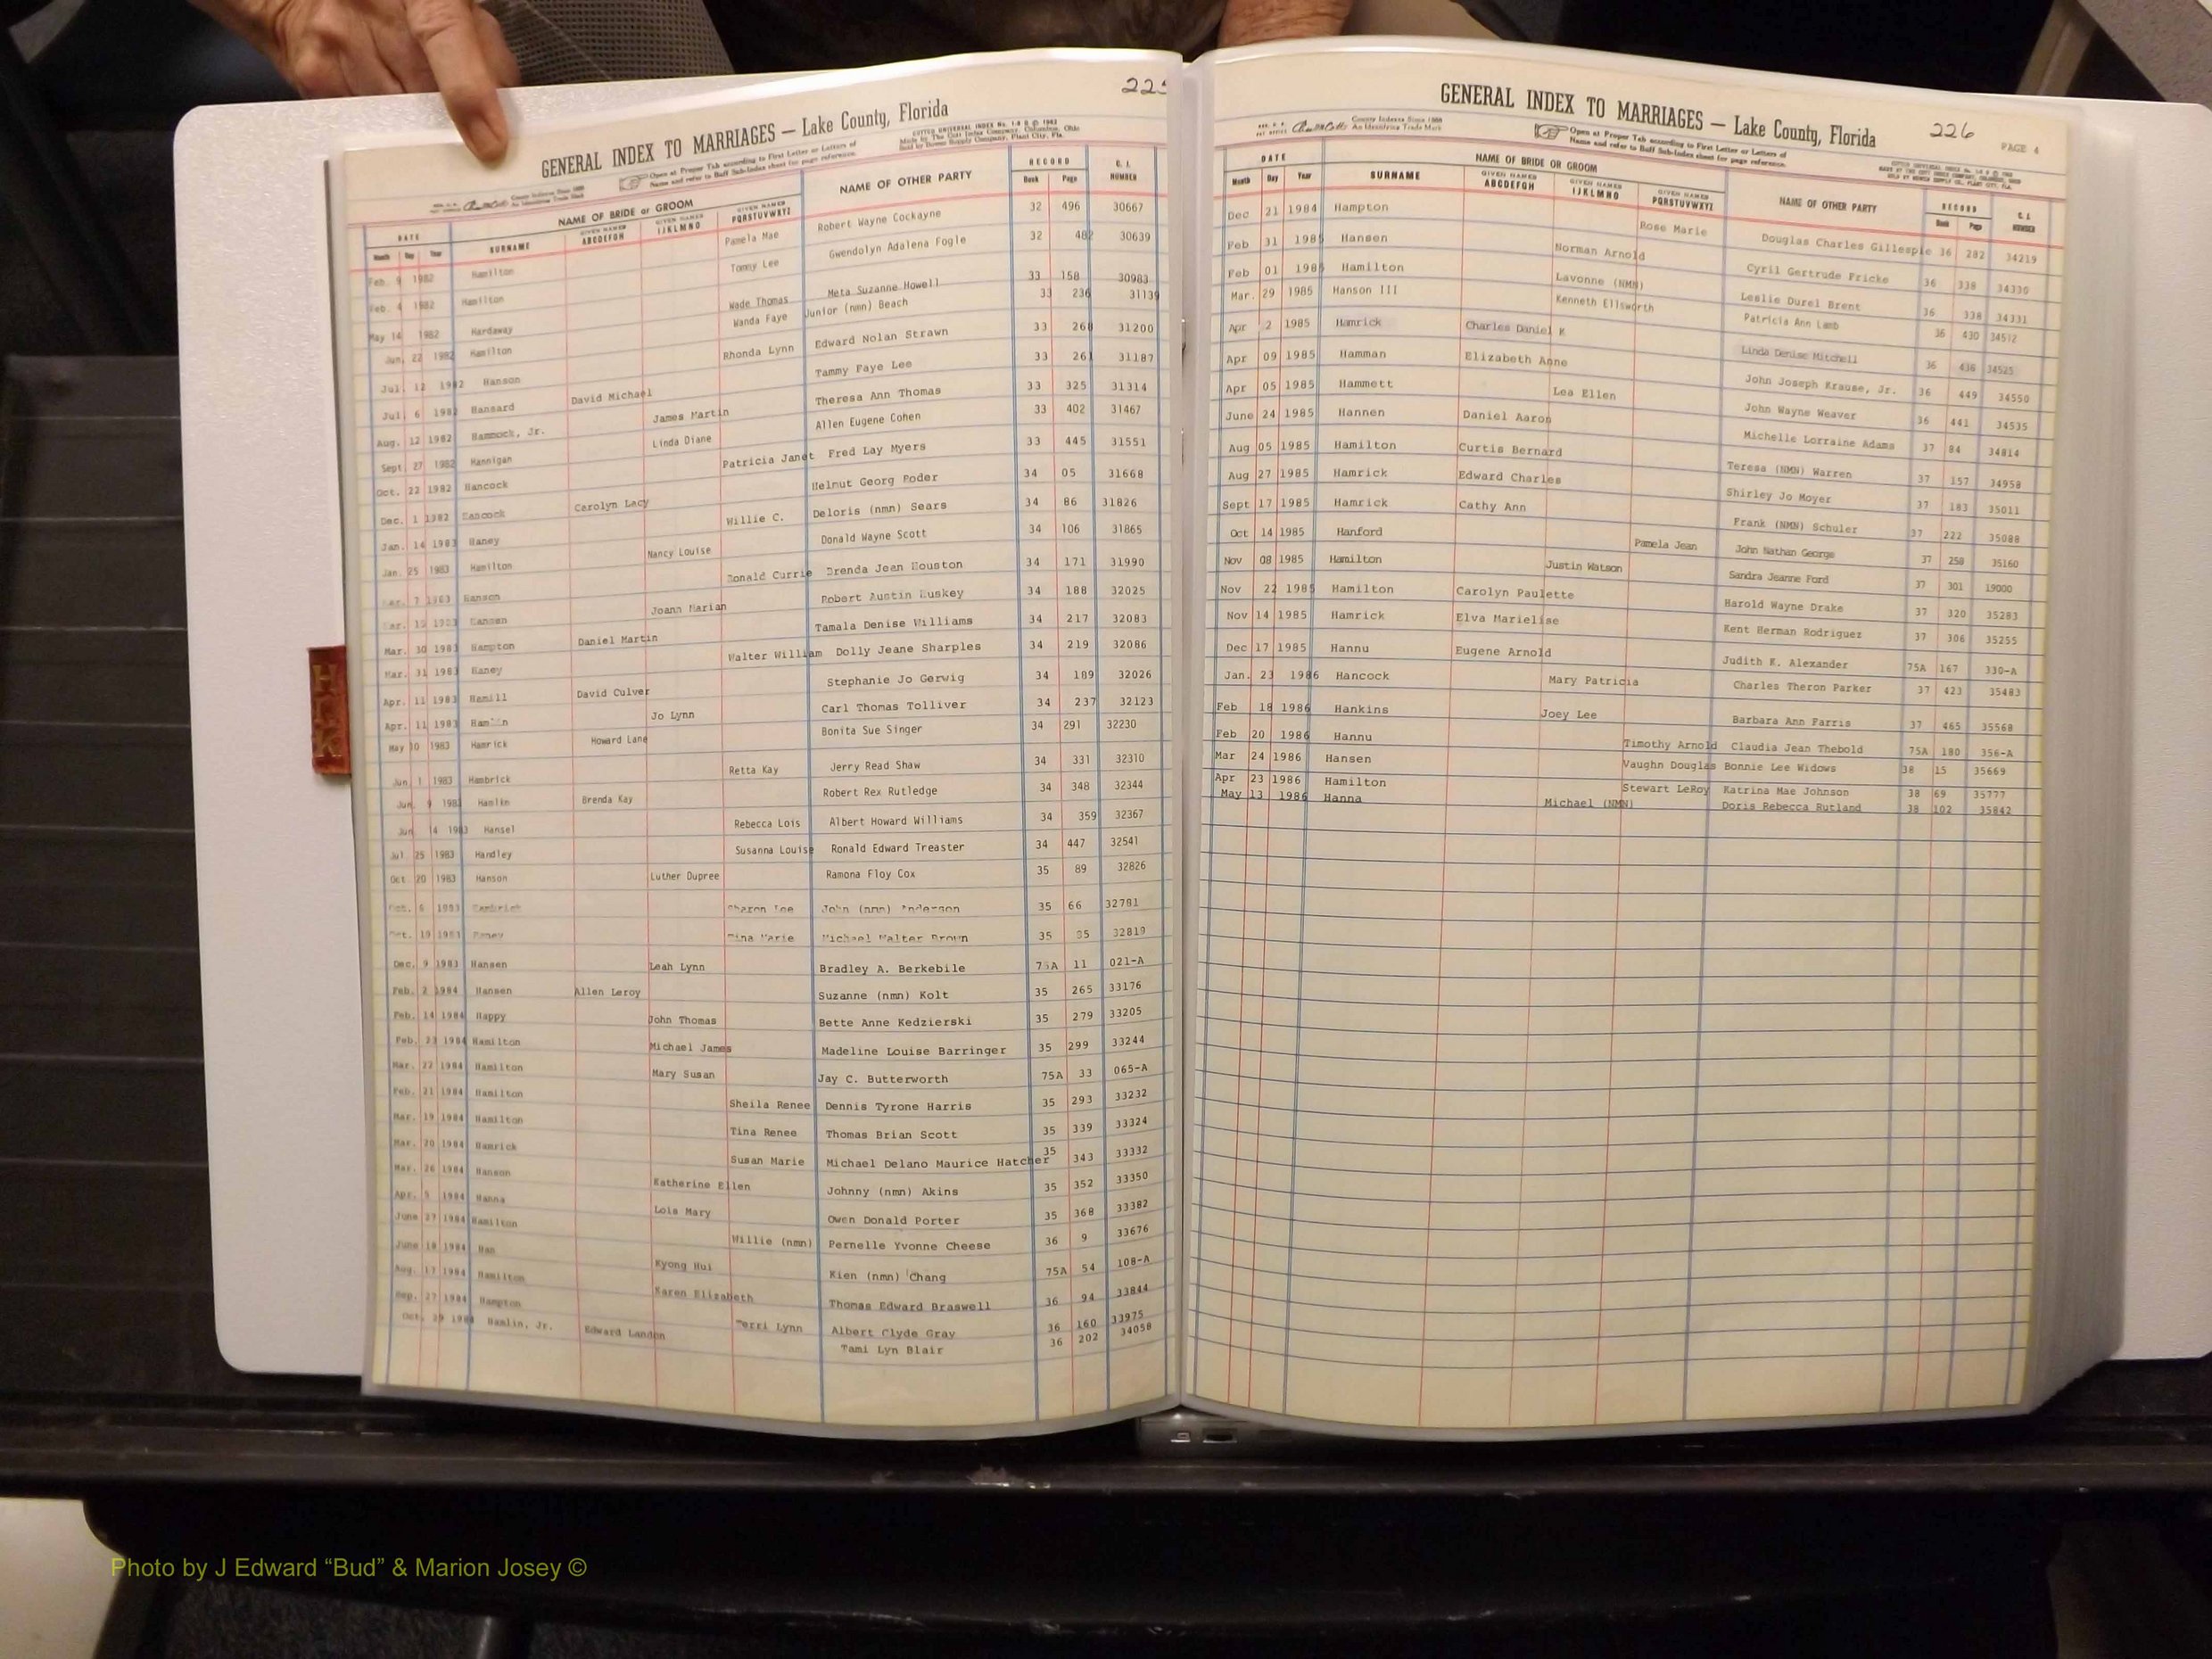 225
GENERAL INDEX TO MARRIAGES — Lake County, Florida
Open at Proper Tab according to First Letter or Letters of
Name and refer to Buff Sub-Index sheet for page reference.
DATE NAME OF BRIDE or GROOM NAME OF OTHER PARTY RECORD C. I.
Month Day Year SURNAME GIVEN NAMES ABCDEFGH GIVEN NAMES IJKLMNO GIVEN NAMES PQRSTUVWXYZ Book Page NUMBER
Feb. 1982 Hamilton Pamela Mae Robert Wayne Cockayne 32 496 30667
Feb. 4 1982 Hamilton Tommy Lee Gwendolyn Adalena Fogle 32 482 30639
May 14 1982 Hardaway Wade Thomas Meta Suzanne Howell 33 158 30983
Jun. 22 1982 Hamilton Wanda Faye Junior (nmn) Beach 33 236 31139
Jul. 12 1982 Hanson Rhonda Lynn Edward Nolan Strawn 33 268 31200
Jul. 6 1982 Hansard David Michael Tammy Faye Lee 33 261 31187
Aug. 12 1982 Hammock, Jr. James Martin Theresa Ann Thomas 33 325 31314
Sept 27 1982 Hannigan Linda Diane Allen Eugene Cohen 33 402 31467
Oct. 22 1982 Hancock Patricia Janet Fred Lay Myers 33 445 31551
Dec. 1 1982 Hancock Carolyn Lacy Helmut Georg Poder 34 05 31668
Jan. 14 1983 Haney Willie C. Deloris (nmn) Sears 34 86 31826
Jan. 25 1983 Hamilton Nancy Louise Donald Wayne Scott 34 106 31865
Mar. 7 1983 Hanson Ronald Currie Brenda Jean Houston 34 171 31990
Mar. 1983 Hansen Joann Marian Robert Austin Huskey 34 188 32025
Mar. 30 1983 Hampton Daniel Martin Tamala Denise Williams 34 217 32083
Mar. 31 1983 Haney Walter William Dolly Jeane Sharples 34 219 32086
Apr. 11 1983 Hamill David Culver Stephanie Jo Gerwig 34 189 32026
Apr. 11 1983 Hamlin Jo Lynn Carl Thomas Tolliver 34 237 32123
May 10 1983 Hamrick Howard Lane Bonita Sue Singer 34 291 32230
Jun. 1 1983 Hambrick Retta Kay Jerry Read Shaw 34 331 32310
Jun. 9 1983 Hamlin Brenda Kay Robert Rex Rutledge 34 348 32344
Jun. 14 1983 Hansel Rebecca Lois Albert Howard Williams 34 359 32367
Jul. 25 1983 Handley Susanna Louise Ronald Edward Treaster 34 447 32541
Oct. 20 1983 Hanson Luther Dupree Ramona Floy Cox 35 89 32826
Oct. 6 1983 Sharon Lee John (nmn) Anderson 35 66 32781
Oct. 19 1983 Haney Tina Marie Michael Walter Brown 35 85 32819
Dec. 9 1983 Hansen Leah Lynn Bradley A. Berkebile 75A 11 021-A
Feb. 2 1984 Hansen Allen Leroy Suzanne (nmn) Kolt 35 265 33176
Feb. 14 1984 Happy John Thomas Bette Anne Kedzierski 35 279 33205
Feb. 23 1984 Hamilton Michael James Madeline Louise Barringer 35 299 33244
Mar. 22 1984 Hamilton Mary Susan Jay C. Butterworth 75A 33 065-A
Feb. 21 1984 Hamilton Sheila Renee Dennis Tyrone Harris 35 293 33232
Mar. 19 1984 Hamilton Tina Renee Thomas Brian Scott 35 339 33324
Mar. 20 1984 Hamrick Susan Marie Michael Delano Maurice Hatcher 35 343 33332
Mar. 26 1984 Hanson Katherine Ellen Johnny (nmn) Akins 35 352 33350
Apr. 5 1984 Hanna Lois Mary Owen Donald Porter 35 368 33382
June 27 1984 Hamilton Willie (nmn) Pernelle Yvonne Cheese 36 9 33676
June 18 1984 Han Kyong Hui Kien (nmn) Chang 75A 54 108-A
Aug. 17 1984 Hamilton Karen Elizabeth Thomas Edward Braswell 36 94 33844
Sep. 27 1984 Hampton Terri Lynn Albert Clyde Gray 36 160 33975
Oct. 29 1984 Hamlin, Jr. Edward Landon Tami Lyn Blair 36 202 34058
HJK
GENERAL INDEX TO MARRIAGES — Lake County, Florida 226 PAGE 4
Open at Proper Tab according to First Letter or Letters of
Name and refer to Buff Sub-Index sheet for page reference.
DATE NAME OF BRIDE OR GROOM NAME OF OTHER PARTY RECORD C. I.
Month Day Year SURNAME GIVEN NAMES ABCDEFGH GIVEN NAMES IJKLMNO GIVEN NAMES PQRSTUVWXYZ Book Page NUMBER
Dec 21 1984 Hampton Rose Marie Douglas Charles Gillespie 36 282 34219
Feb 31 1985 Hansen Norman Arnold Cyril Gertrude Fricke 36 338 34330
Feb 01 1985 Hamilton Lavonne (NMN) Leslie Durel Brent 36 338 34331
Mar. 29 1985 Hanson III Kenneth Ellsworth Patricia Ann Lamb 36 430 34512
Apr 2 1985 Hamrick Charles Daniel K Linda Denise Mitchell 36 436 34525
Apr 09 1985 Hamman Elizabeth Anne John Joseph Krause, Jr. 36 449 34550
Apr 05 1985 Hammett Lea Ellen John Wayne Weaver 36 441 34535
June 24 1985 Hannen Daniel Aaron Michelle Lorraine Adams 37 84 34814
Aug 05 1985 Hamilton Curtis Bernard Teresa (NMN) Warren 37 157 34958
Aug 27 1985 Hamrick Edward Charles Shirley Jo Moyer 37 183 35011
Sept 17 1985 Hamrick Cathy Ann Frank (NMN) Schuler 37 222 35088
Oct 14 1985 Hanford Pamela Jean John Nathan George 37 258 35160
Nov 08 1985 Hamilton Justin Watson Sandra Jeanne Ford 37 301 19000
Nov 22 1985 Hamilton Carolyn Paulette Harold Wayne Drake 37 320 35283
Nov 14 1985 Hamrick Elva Marielise Kent Herman Rodriguez 37 306 35255
Dec 17 1985 Hannu Eugene Arnold Judith K. Alexander 75A 167 330-A
Jan. 23 1986 Hancock Mary Patricia Charles Theron Parker 37 423 35483
Feb 18 1986 Hankins Joey Lee Barbara Ann Farris 37 465 35568
Feb 20 1986 Hannu Timothy Arnold Claudia Jean Thebold 75A 180 356-A
Mar 24 1986 Hansen Vaughn Douglas Bonnie Lee Widows 38 15 35669
Apr 23 1986 Hamilton Stewart LeRoy Katrina Mae Johnson 38 69 35777
May 13 1986 Hanna Michael (NMN) Doris Rebecca Rutland 38 102 35842
Photo by J Edward “Bud” & Marion Josey ©